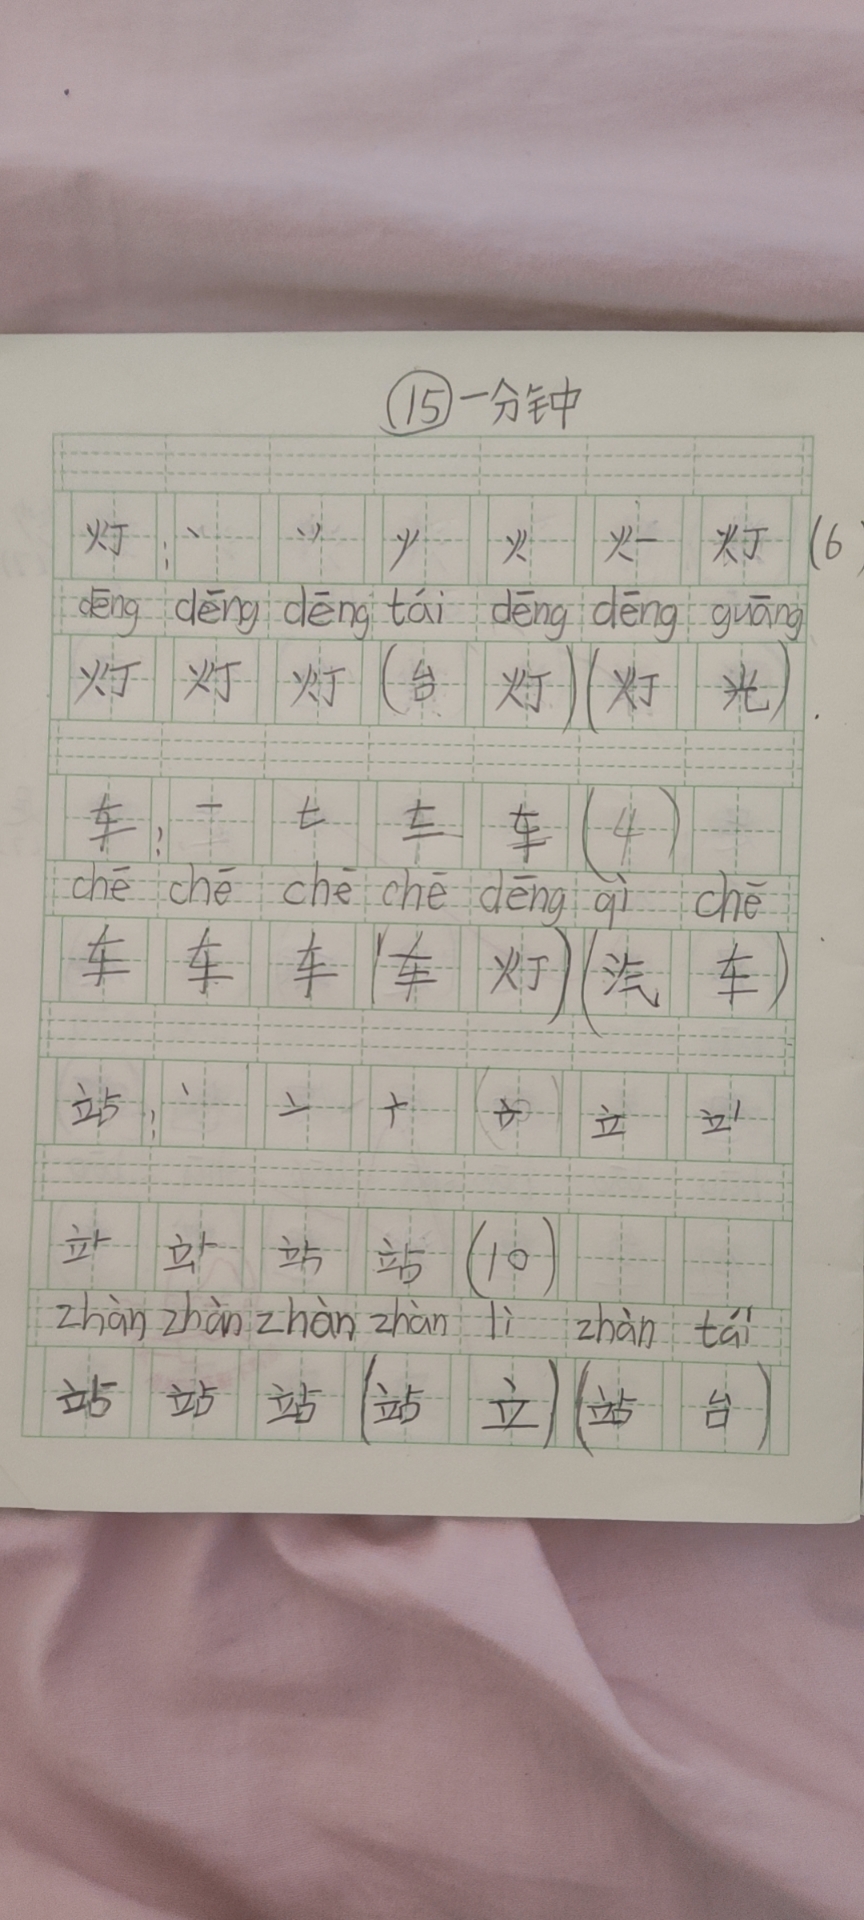 ⑮一分钟
灯：丶 丷 火 火一 灯 (6)
dēng dēng dēng tái dēng dēng guāng
灯 灯 灯 (台 灯) (灯 光)
车：一 车 (4)
chē chē chē chē dēng qì chē
车 车 车 (车 灯) (汽 车)
站：丶 亠 立 立丨
站 (10)
zhàn zhàn zhàn zhàn lì zhàn tái
站 站 站 (站 立) (站 台)